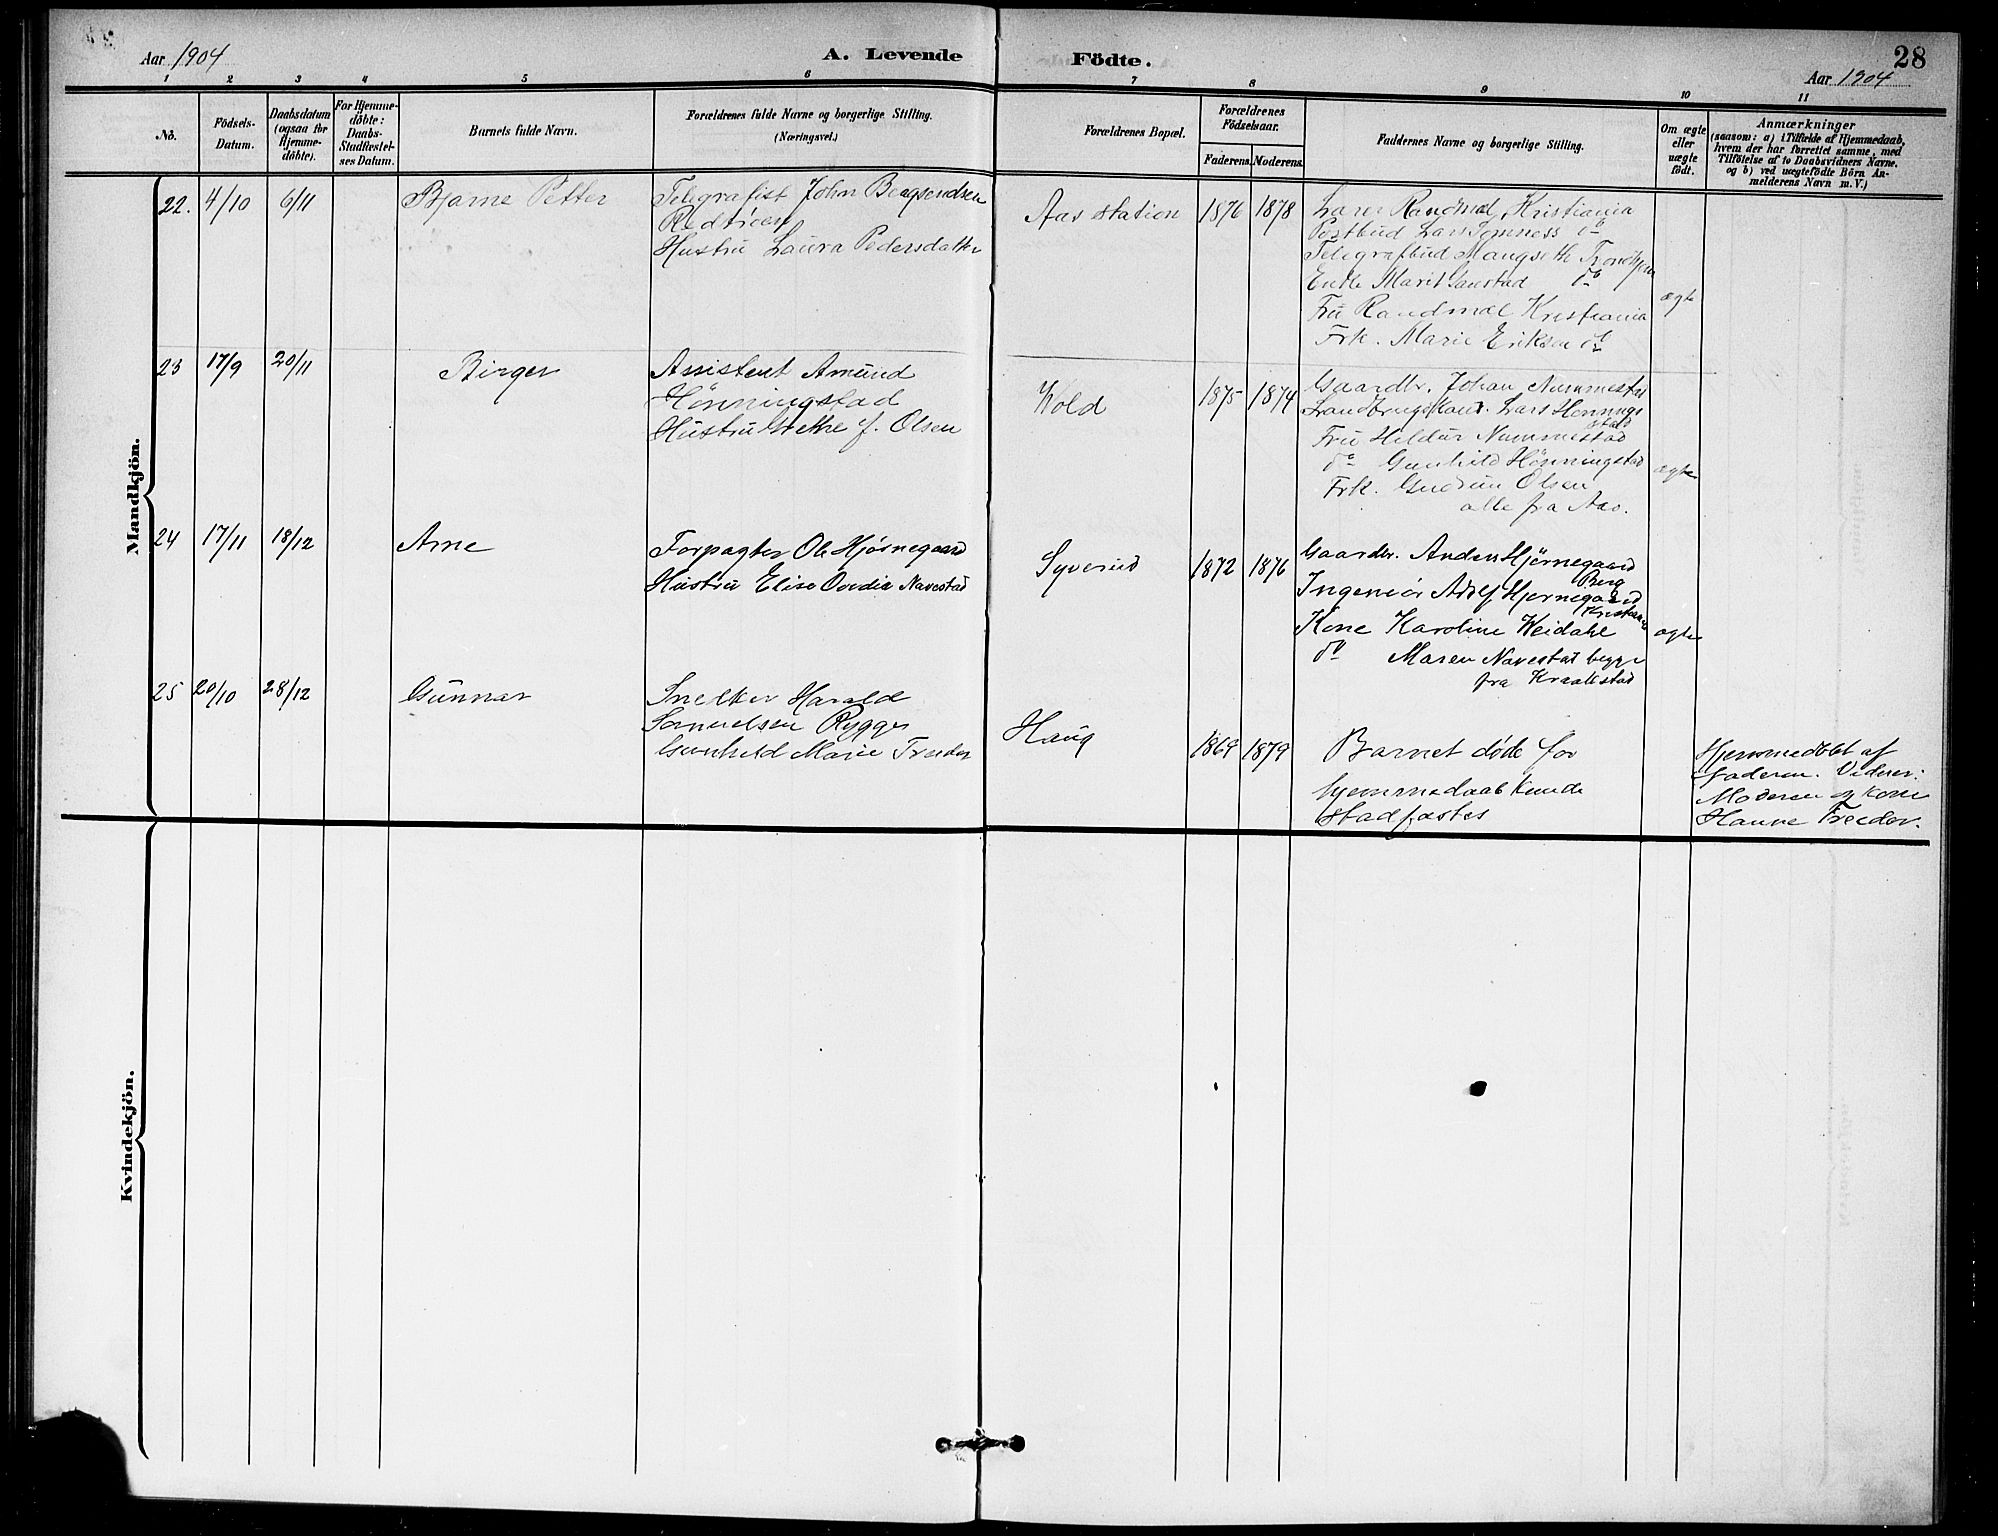 28
Aar 1904
A. Levende
Födte.
Aar 1904
1 2 3 4 5 6 7 8 9 10 11
No.
Födsels-
Datum.
Daabsdatum
(ogsaa for
Hjemme-
döbte).
For Hjemme-
döbte:
Daabs-
Stadfæstel-
ses Datum.
Barnets fulde Navn.
Forældrenes fulde Navne og borgerlige Stilling.
(Næringsvei.)
Forældrenes Bopæl.
Forældrenes
Födselsaar.
Faderens. Moderens.
Faddernes Navne og borgerlige Stilling.
Om ægte
eller
uægte
födt.
Anmærkninger
(saasom: a) i Tilfælde af Hjemmedaab,
hvem der har forrettet samme, med
Tilföielse af to Daabsvidners Navne.
og b) ved uægtefödte Börn An-
melderens Navn m. V.)
Mandkjön.
22. 4/10 6/11
Bjarne Petter
Telegrafist John
Hustru Laura Pedersdatter
Aas station
1876 1878
Randmæl, Kristiania
Postbud Lars do
Telegrafbud Mangseth Trondhjem
Enke Marit do
Fru Randmæl Kristiania
Frk. Marie Eriksen do
ægte
23 17/9 20/11
Birger
Assistent Amund
Hönningstad
Hustru Grethe f. Olsen
Wold
1875 1874
Gaardbr. Johan Nummestad
Lars Hönnings
stad
Fru Hildur Nummestad
do Gunhild Hönningstad
Frk. Gudrun Olsen
alle fra Aas.
ægte
24 17/11 18/12
Arne
Forpagter Ole Hjörnegaard
Hustru Elise Ovidia Navestad
Syverud
1872 1876
Gaardbr. Anders Hjörnegaard
Berg
Ingeniör Adolf Hjørnegaard
Kristiania
Kone Karoline Weidahl
do Maren Navestad begge
fra Kraakstad
ægte
25 20/10 28/12
Gunnar
Snekker Harald
Samuelsen Rygge
Gunhild Marie
Haug
1869 1879
Barnet døde før
hjemmedaab kunde
stadfæstes
Hjemmedöbt af
Faderen. Vidner:
Moderen og kone
Hanne
Kvindekjön.